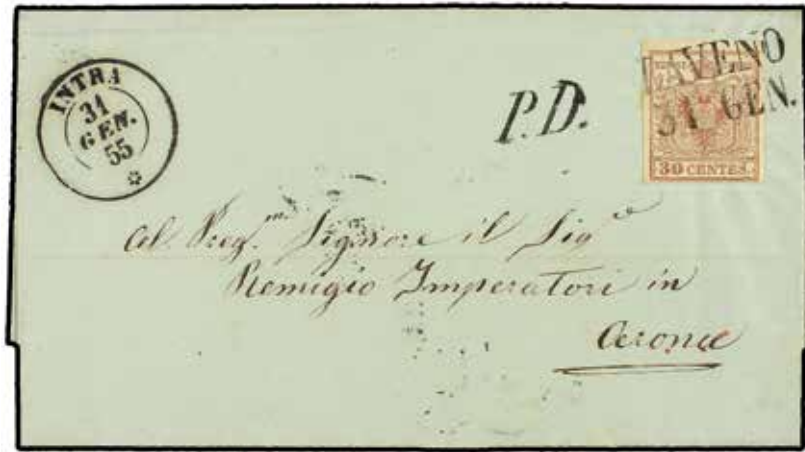 INTRA
31
GEN.
55
P.D.
LAVENO
31 GEN.
30 CENTES.
Al Preg.mo Signore il Sig.e
Remigio Imperatori in
Arona